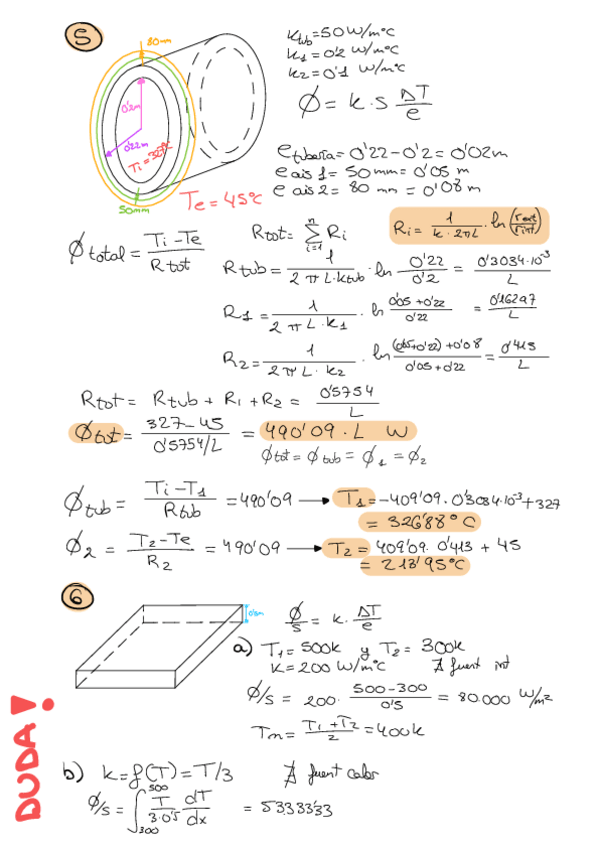 5
80mm
0'2m
0'22m
Ti = 327ºC
50mm
Te = 45ºC
Ktub = 50 W/mºC
K1 = 0'2 W/mºC
K2 = 0'1 W/mºC
ϕ = k · S ΔT/e
e tubería = 0'22 - 0'2 = 0'02m
e ais 1 = 50 mm = 0'05 m
e ais 2 = 80 mm = 0'08 m
ϕ total = (Ti - Te)/Rtot
Rtot = Σ(i=1 → n) Ri
Ri = 1/(k · 2πL) · ln (rext/rint)
Rtub = 1/(2πL·Ktub) · ln 0'22/0'2 = 0'3034·10^-3/L
R1 = 1/(2πL·k1) · ln (0'05 + 0'22)/0'22 = 0'16297/L
R2 = 1/(2πL·k2) · ln ((0'05+0'22)+0'08)/(0'05+0'22) = 0'413/L
Rtot = Rtub + R1 + R2 = 0'5754/L
ϕtot = (327-45)/(0'5754/L) = 490'09 · L W
ϕtot = ϕtub = ϕ1 = ϕ2
ϕtub = (Ti - T1)/Rtub = 490'09 → T1 = -409'09 · 0'3034·10^-3 + 327
= 326'88ºC
ϕ2 = (T2 - Te)/R2 = 490'09 → T2 = 409'09 · 0'413 + 45
= 213'95ºC
6
ϕ/S = k · ΔT/e
a) T1 = 500k y T2 = 300k
K = 200 W/mºC ∄ fuent int
ϕ/S = 200 · (500-300)/0'5 = 80.000 W/m²
Tm = (T1 + T2)/2 = 400k
DUDA!
b) k = f(T) = T/3 ∄ fuent calor
ϕ/S = ∫(300 → 500) T/(3·0'5) dT/dx = 53333'33